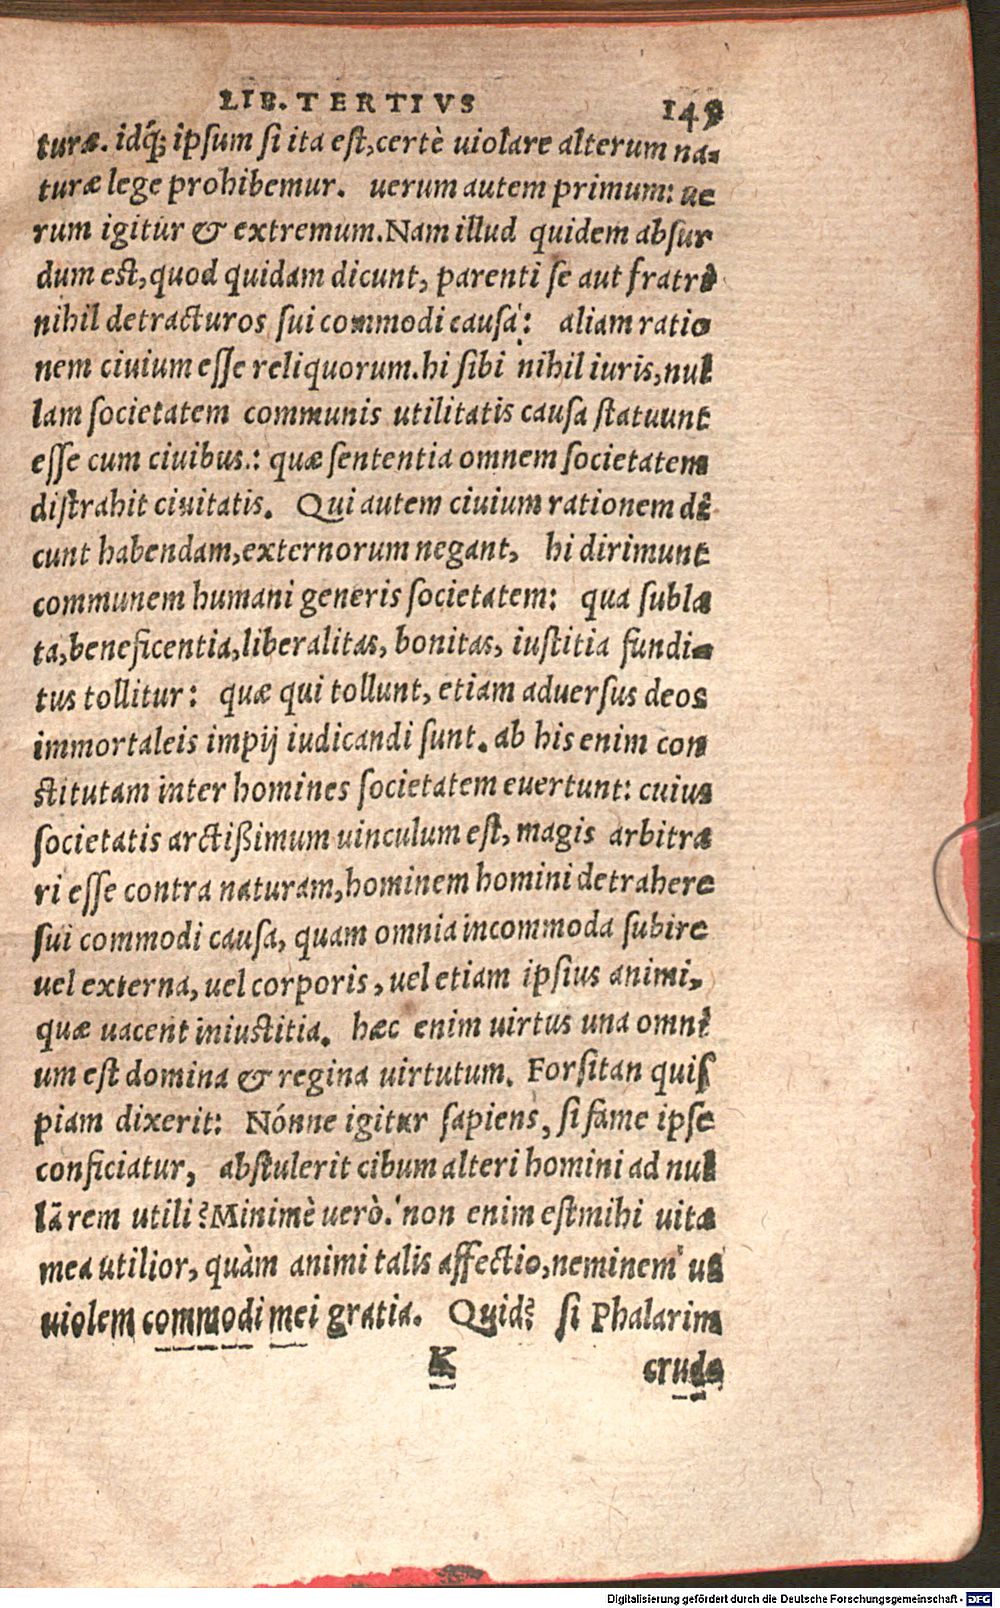 LIB. TERTIVS 145
turæ. idq́; ipsum si ita est, certè uiolare alterum na-
turæ lege prohibemur. uerum autem primum: ue
rum igitur & extremum. Nam illud quidem absur
dum est, quod quidam dicunt, parenti se aut fratri
nihil detracturos sui commodi causa: aliam ratio
nem ciuium esse reliquorum. hi sibi nihil iuris, nul
lam societatem communis utilitatis causa statuunt
esse cum ciuibus.: quæ sententia omnem societatem
distrahit ciuitatis. Qui autem ciuium rationem di
cunt habendam, externorum negant, hi dirimunt
communem humani generis societatem: qua subla
ta, beneficentia, liberalitas, bonitas, iustitia fundi-
tus tollitur: quæ qui tollunt, etiam aduersus deos
immortaleis impij iudicandi sunt. ab his enim con
stitutam inter homines societatem euertunt: cuius
societatis arctißimum uinculum est, magis arbitra
ri esse contra naturam, hominem homini detrahere
sui commodi causa, quam omnia incommoda subire
uel externa, uel corporis, uel etiam ipsius animi,
quæ uacent iniustitia. hæc enim uirtus una omni
um est domina & regina uirtutum. Forsitan quis
piam dixerit: Nónne igitur sapiens, si fame ipse
conficiatur, abstulerit cibum alteri homini ad nul
lā rem utili? Minimè uerò. non enim est mihi uita
mea utilior, quàm animi talis affectio, neminem ut
uiolem commodi mei gratia. Quid? si Phalarim
K crude
Digitalisierung gefördert durch die Deutsche Forschungsgemeinschaft - DFG